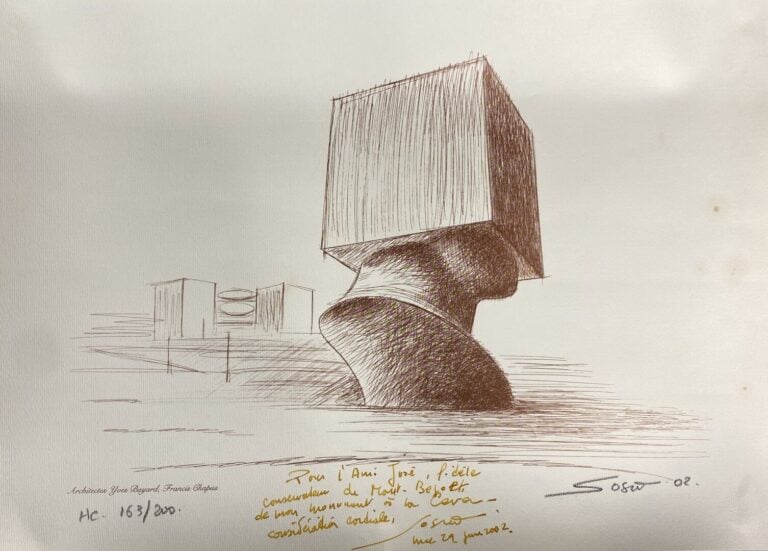 Architectes Yves Bayard, Francis Chapus
HC. 163/200.
Pour l'Ami José, fidèle
conservateur du Mont-
de mon monument à la
considération cordiale,
Sosno
Nice 29 juin 2002.
Sosno 02.